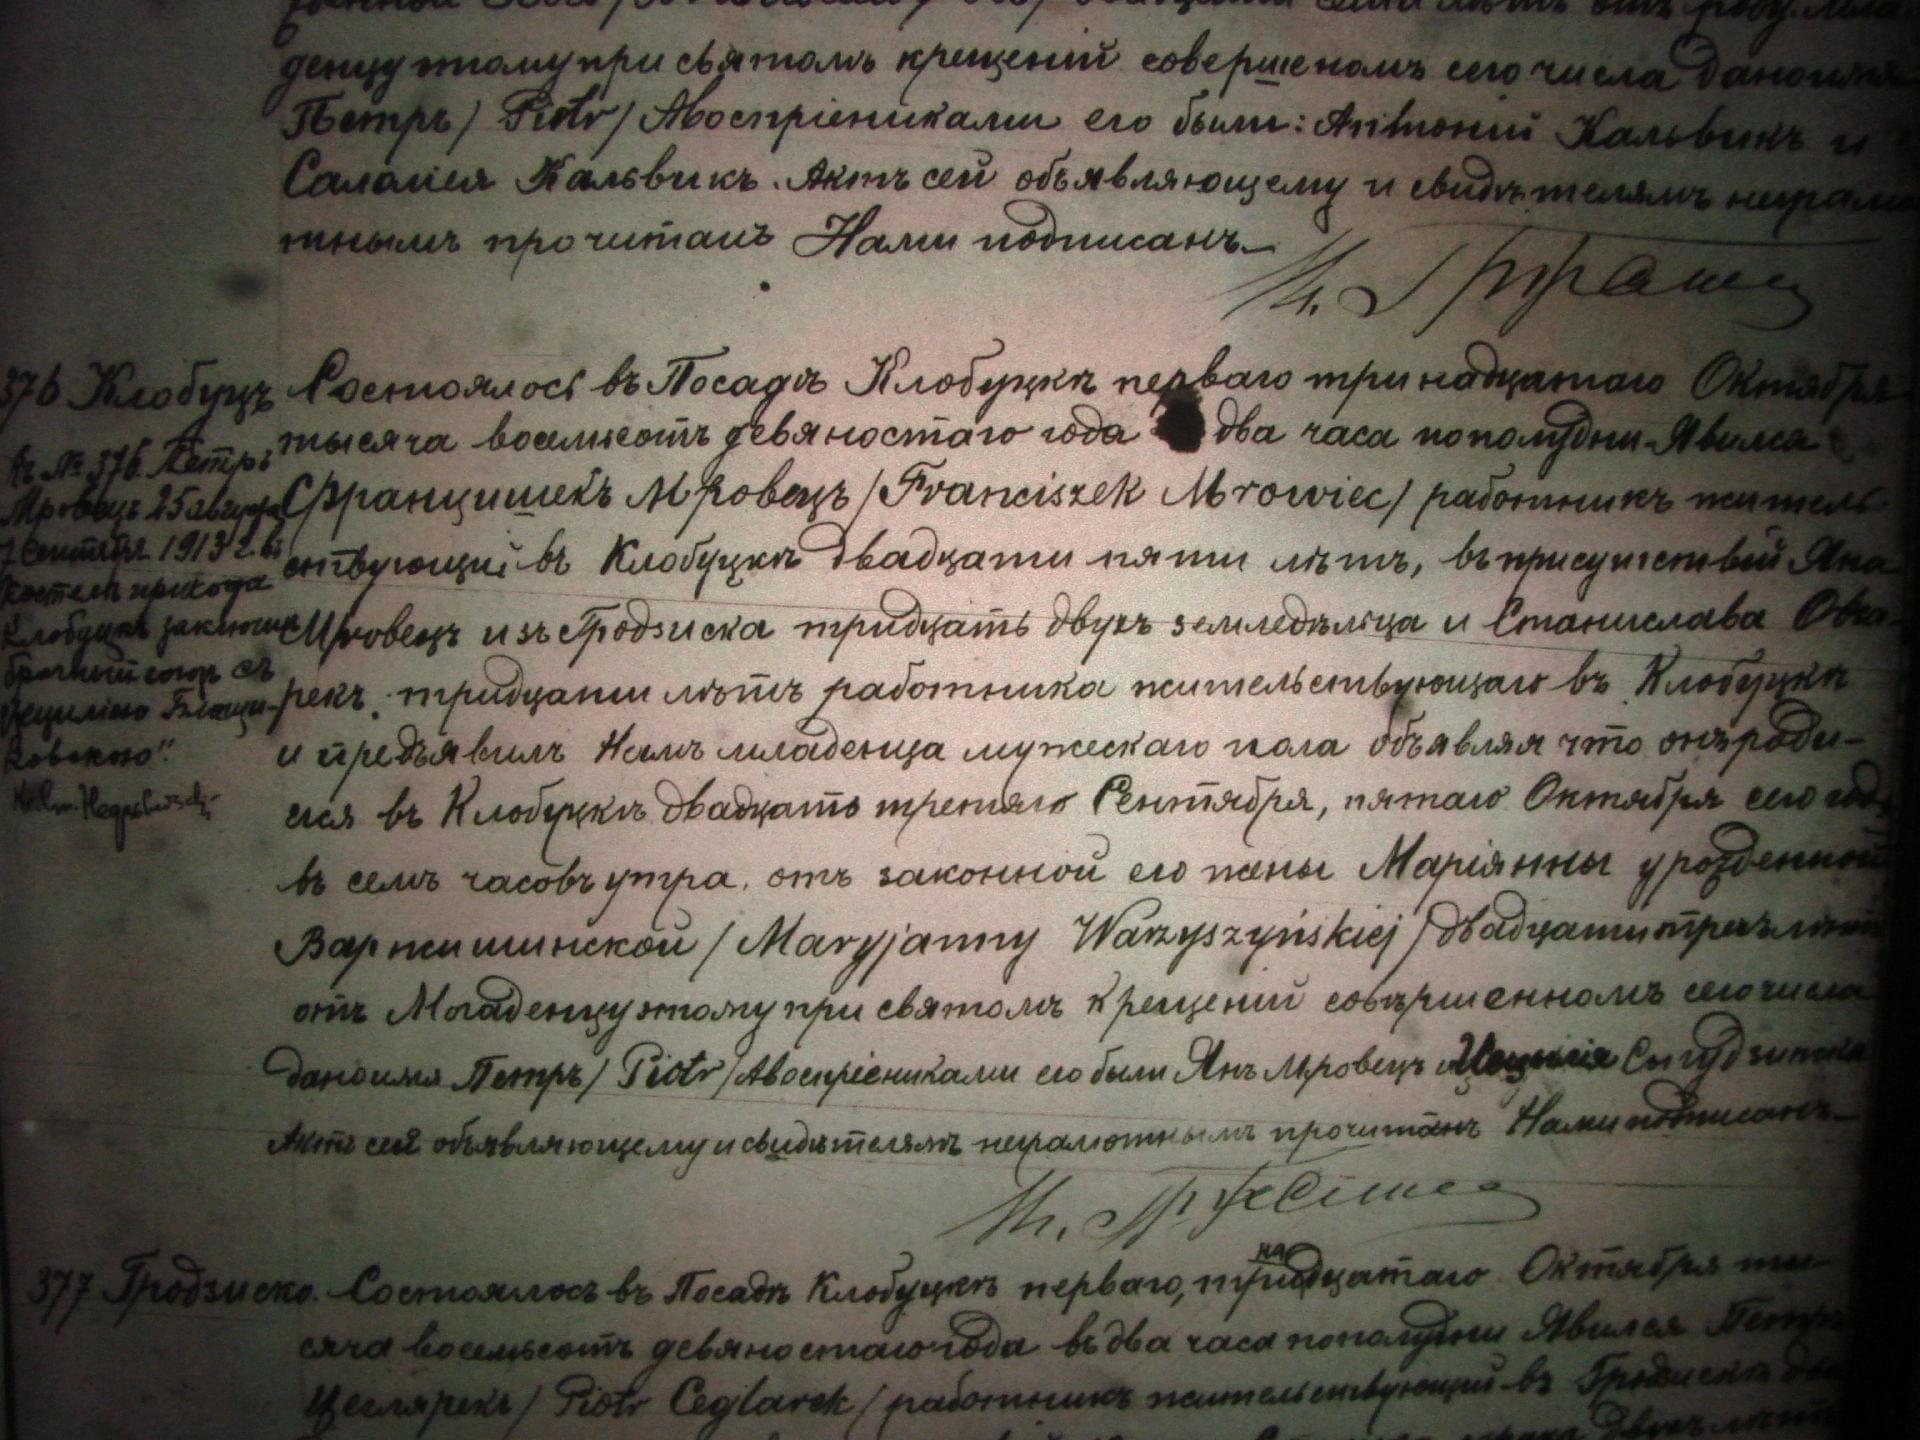 денцу этому при святомъ крещеніи совершеномъ сего числа дано имя
Петръ / Piotr / А воспріениками его были: Антоній Кальвикъ и
Саломея Кальвикъ. Актъ сей объявляющему и свидѣтелямъ неграмо
тнымъ прочитанъ Нами подписанъ.
376 Клобуцъ
Къ № 376. Петръ
Мровецъ 25 августа
7 Сентября 1913 г. въ
костелѣ прихода
Клобуцкъ заключилъ
брачный союзъ съ
Состоялось въ Посадѣ Клобуцкѣ перваго тринадцатаго Октября
тысяча восемьсотъ девяностаго года два часа пополудни Явился
Францишекъ Мровецъ / Franciszek Mrowiec / работникъ житель
ствующій въ Клобуцкѣ двадцати пяти лѣтъ, въ присутствіи Яна
Мровецъ изъ Гродзиска тридцать двухъ земледѣльца и Станислава Овча-
рекъ тридцати лѣтъ работника жительствующаго въ Клобуцкѣ
и предъявилъ Намъ младенца мужескаго пола объявляя что онъ роди-
лся въ Клобуцкѣ двадцать третяго Сентября, пятаго Октября сего года
въ семъ часовъ утра, отъ законной его жены Маріянны урожденной
Варжишинской / Maryjanny Warzyszyńskiej / двадцати трехъ лѣтъ
отъ Младенцу этому при святомъ крещеніи совершенномъ сего числа
дано имя Петръ / Piotr / А воспріениками его были Янъ Мровецъ и Цецылія
Актъ сей объявляющему и свидѣтелямъ неграмотнымъ прочитанъ Нами подписанъ.
377 Гродзиско. Состоялось въ Посадѣ Клобуцкѣ перваго, тринадцатаго Октября ты-
сяча восемьсотъ девяностаго года въ два часа пополудни Явился Петръ
Цеглярекъ / Piotr Ceglarek / работникъ жительствующій въ Гродзискѣ